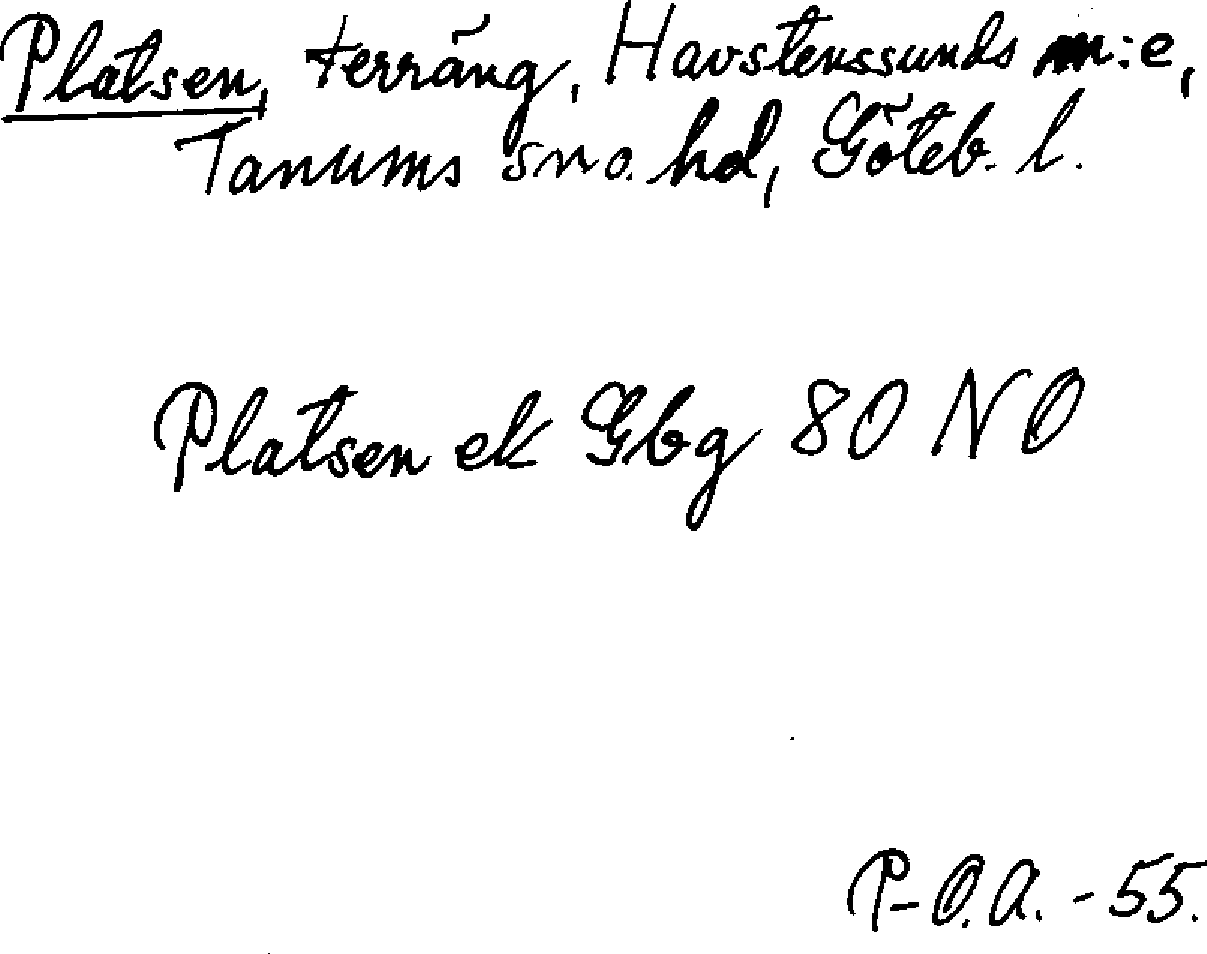 Platsen, terräng, Havstenssunds m:e,
Tanums sn o. hd, Göteb. l.
Platsen ek Gbg 80 NO
P-O.A. -55.